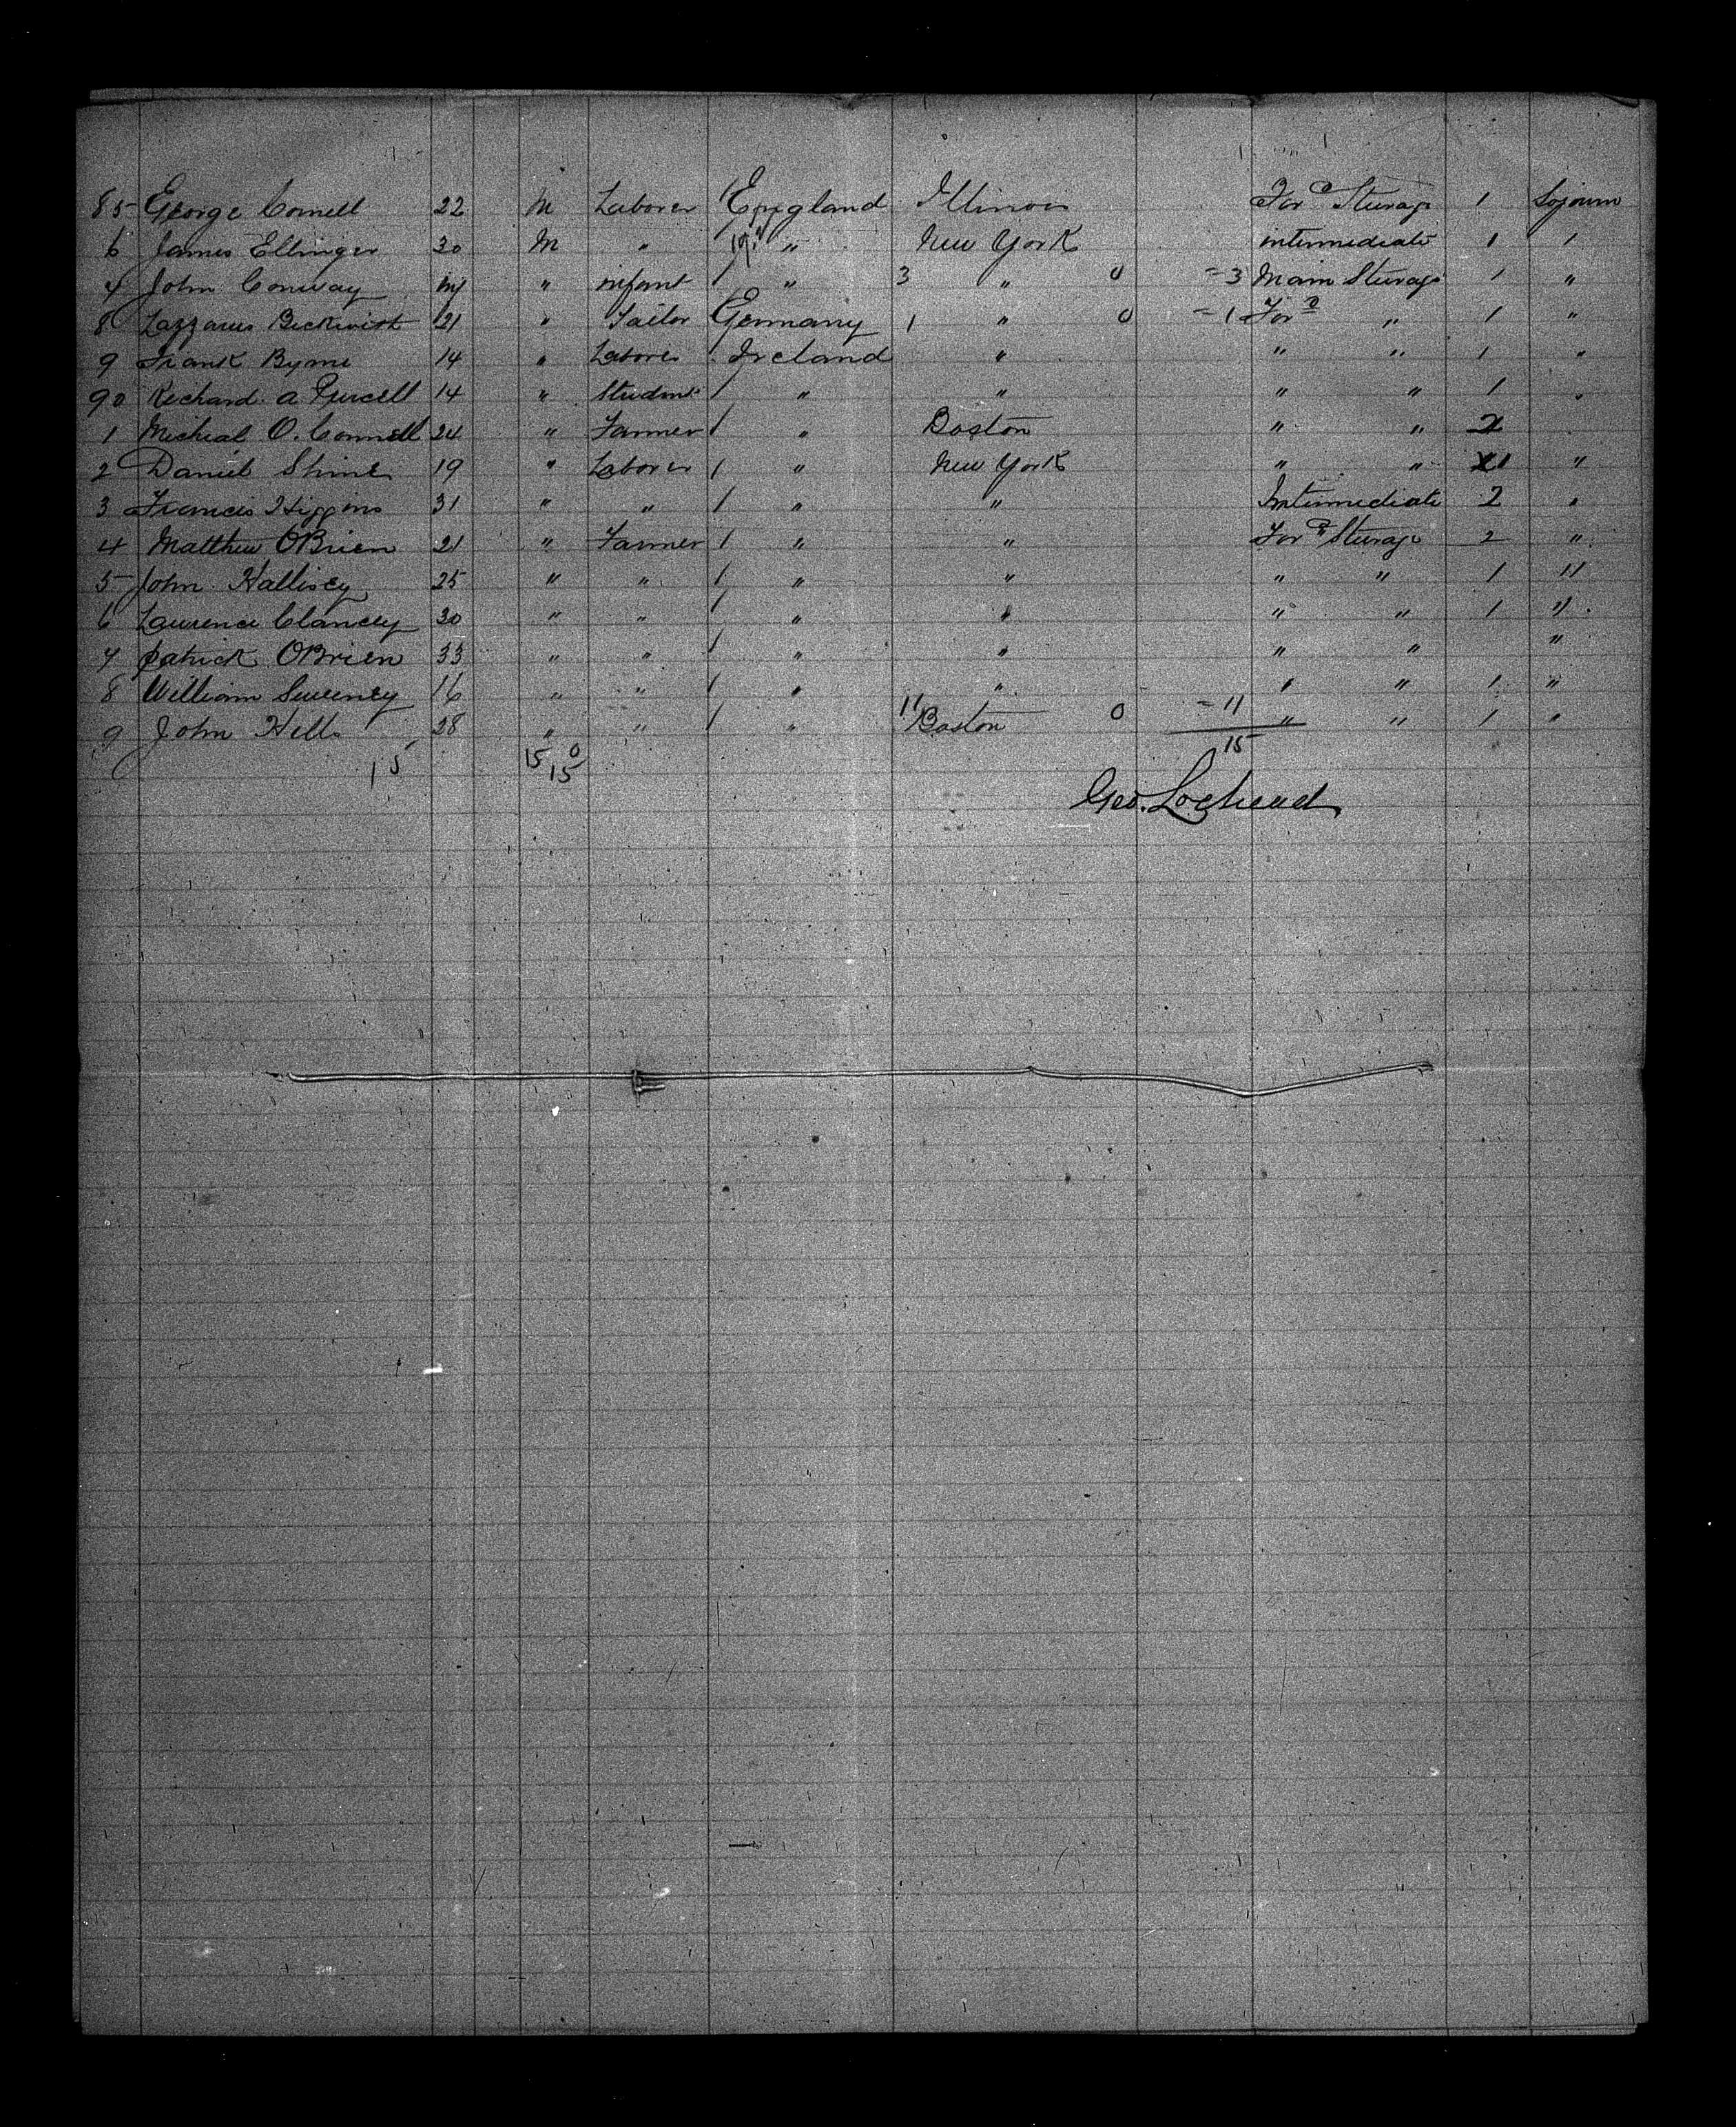 85 George Cornell 22 M Laborer England Illinois For'd Sturage 1 Sojourn
6 James Ellinger 30 M " " New York intermediate 1 1
7 John Conway " infant " 3 " 0 =3 Main Sturage 1 "
8 Lazzarus 21 " Tailor Germany 1 " 0 =1 For'd " 1 "
9 Frank Byrne 14 " Laborer Ireland " " " 1 "
90 Richard a Purcell 14 " Student 1 " " " " 1 "
1 Micheal O. Connell 24 " Farmer 1 " Boston " " 2
2 Daniel Shine 19 " Laborer 1 " New York " " 1 "
3 Francis Higgins 31 " " 1 " " Intermediate 2 "
4 Matthew OBrien 21 " Farmer 1 " " For'd Sturage 2 "
5 John Hallisey 25 " " 1 " " " " 1 "
6 Laurence Clancey 30 " " 1 " " " " 1 "
7 Patrick OBrien 33 " " 1 " " " " "
8 William Sweeney 16 " " 1 " " " " 1 "
9 John Hill 28 " " 1 " 11 Boston 0 =11 " " 1 "
15 15 0 15 15
Geo. Lochead